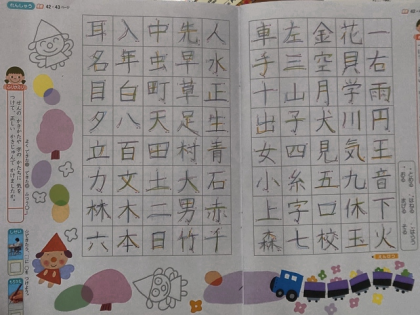 一右雨円王音下火
花貝学川気九休玉
金空月犬見五口校
左三山子四糸字七
車手十出女小上森
人水正生青石赤千
先早草足村大男竹
中虫町天田土二日
入年白八百文木本
耳名目夕立力林六